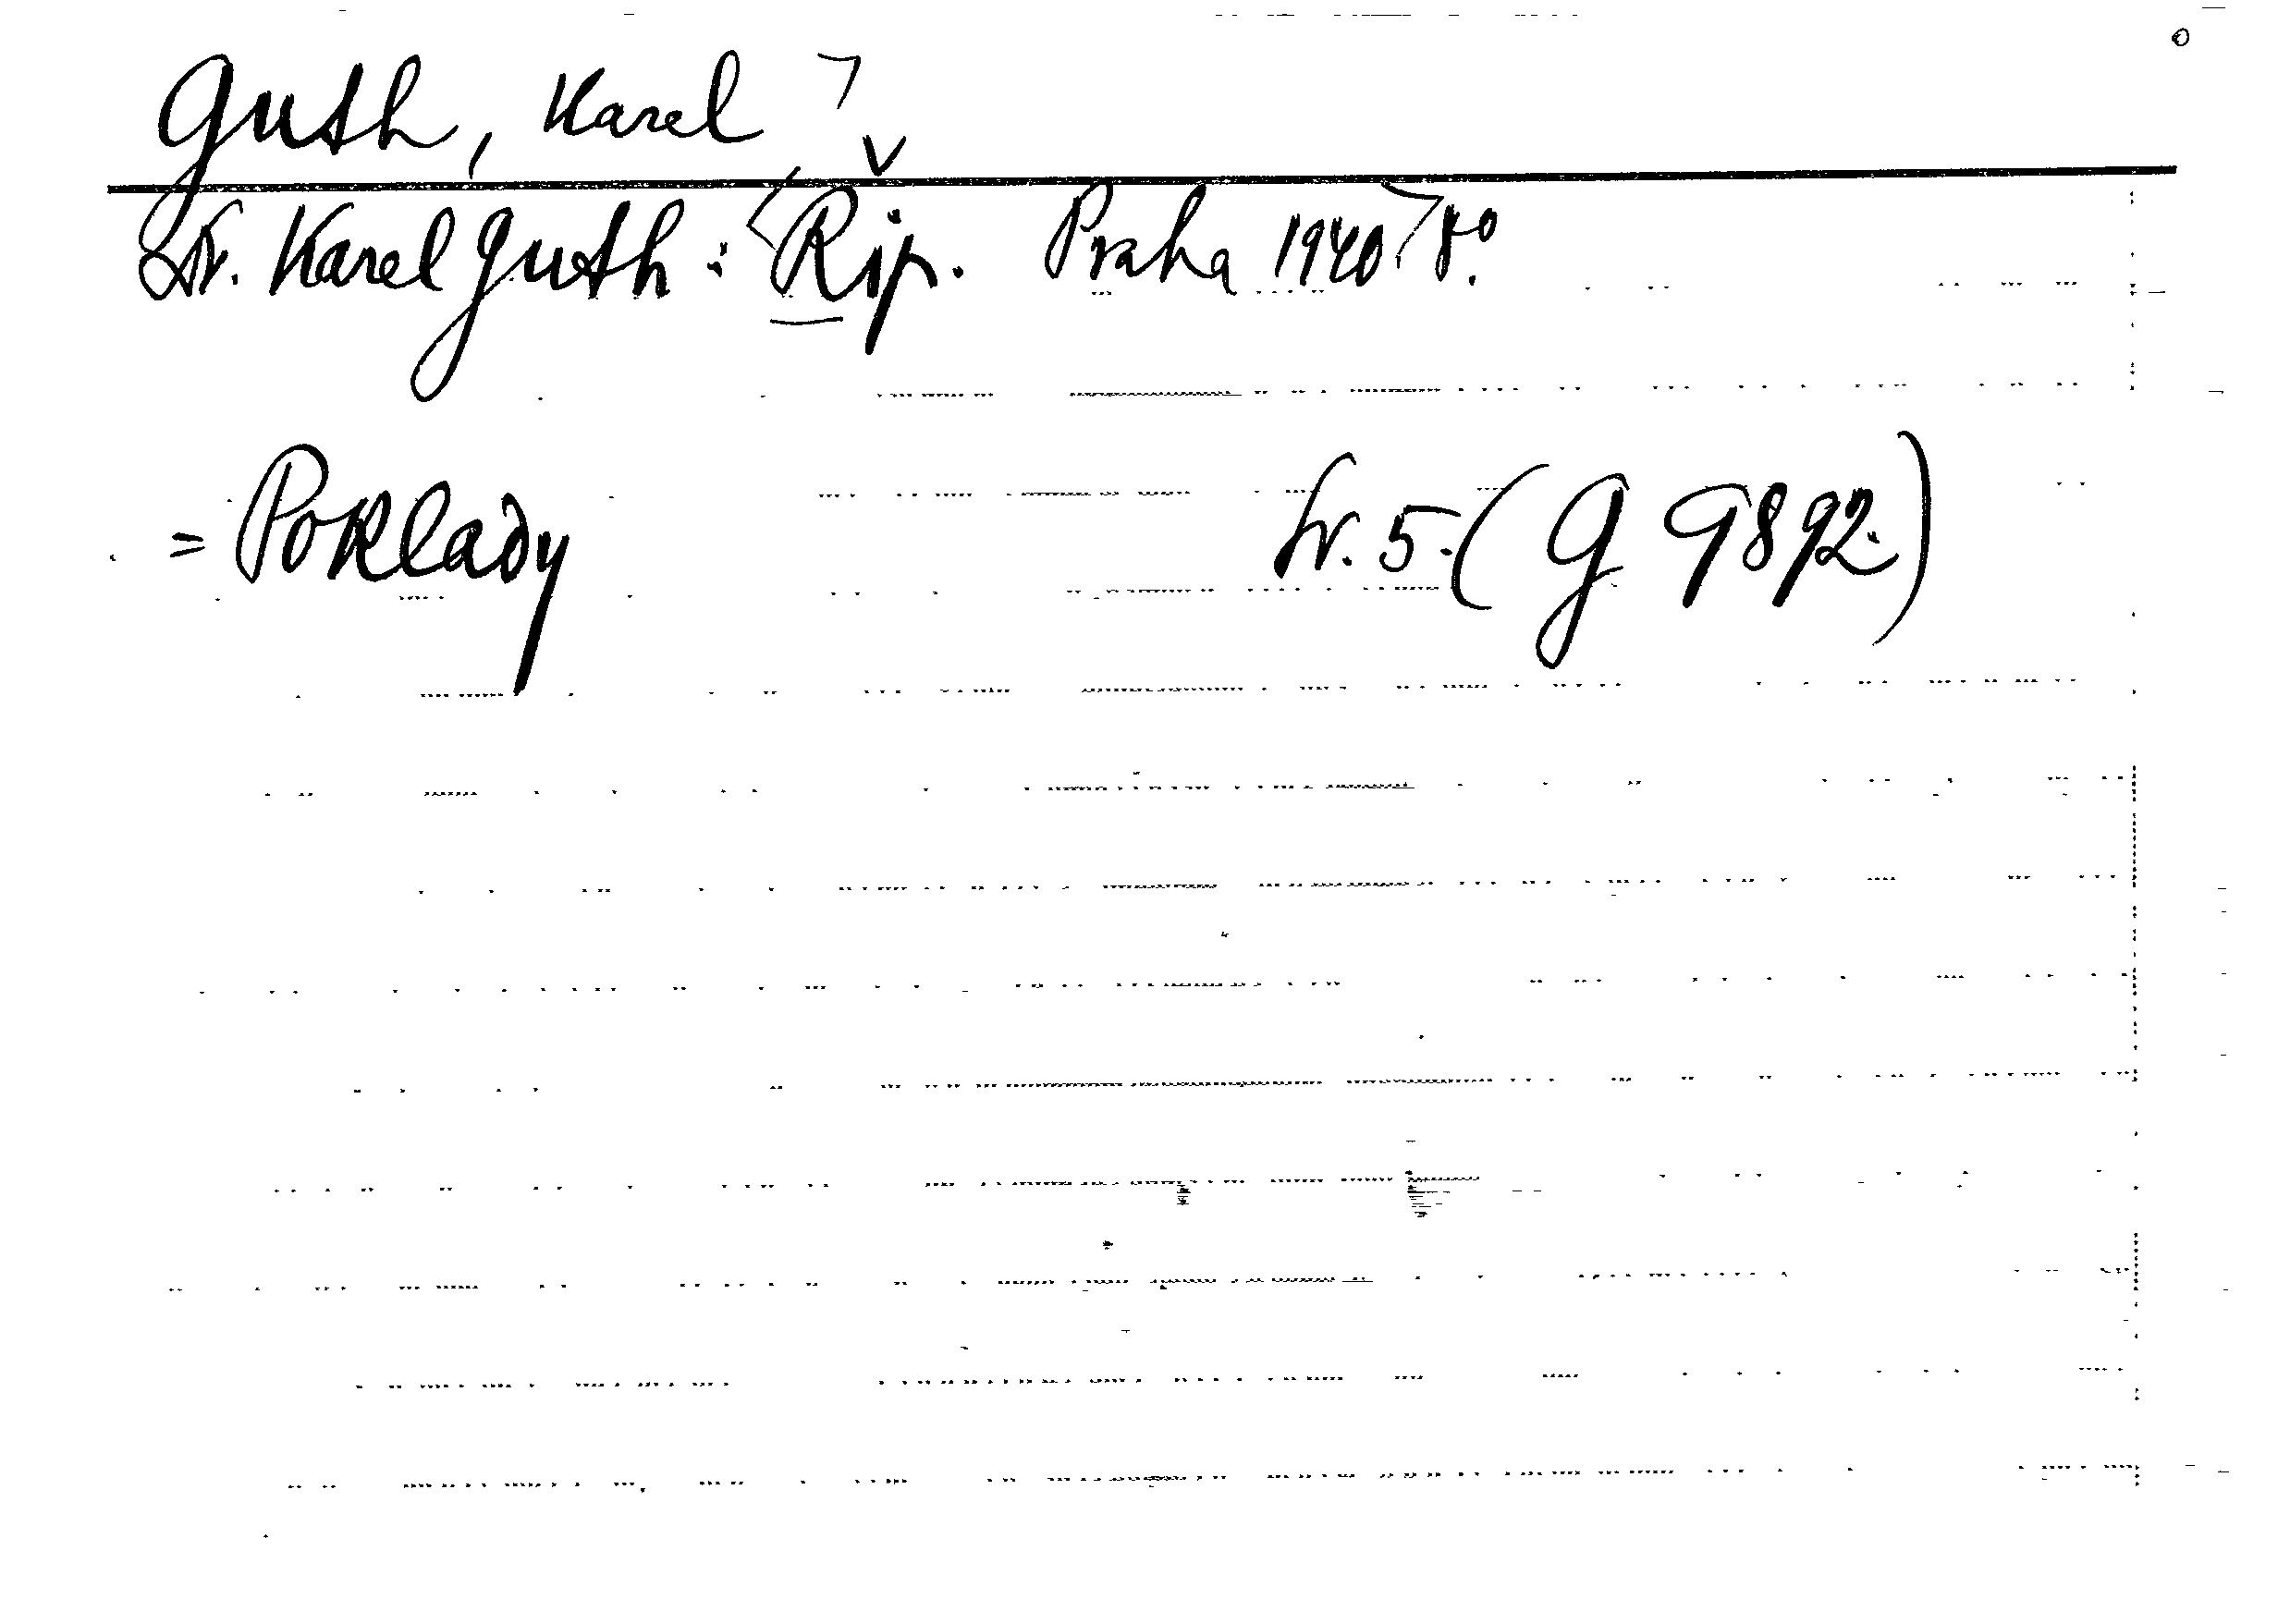 Guth, Karel
Dr. Karel Guth: Říp. Praha 1940 8°.
= Poklady sv. 5. (G 9892)